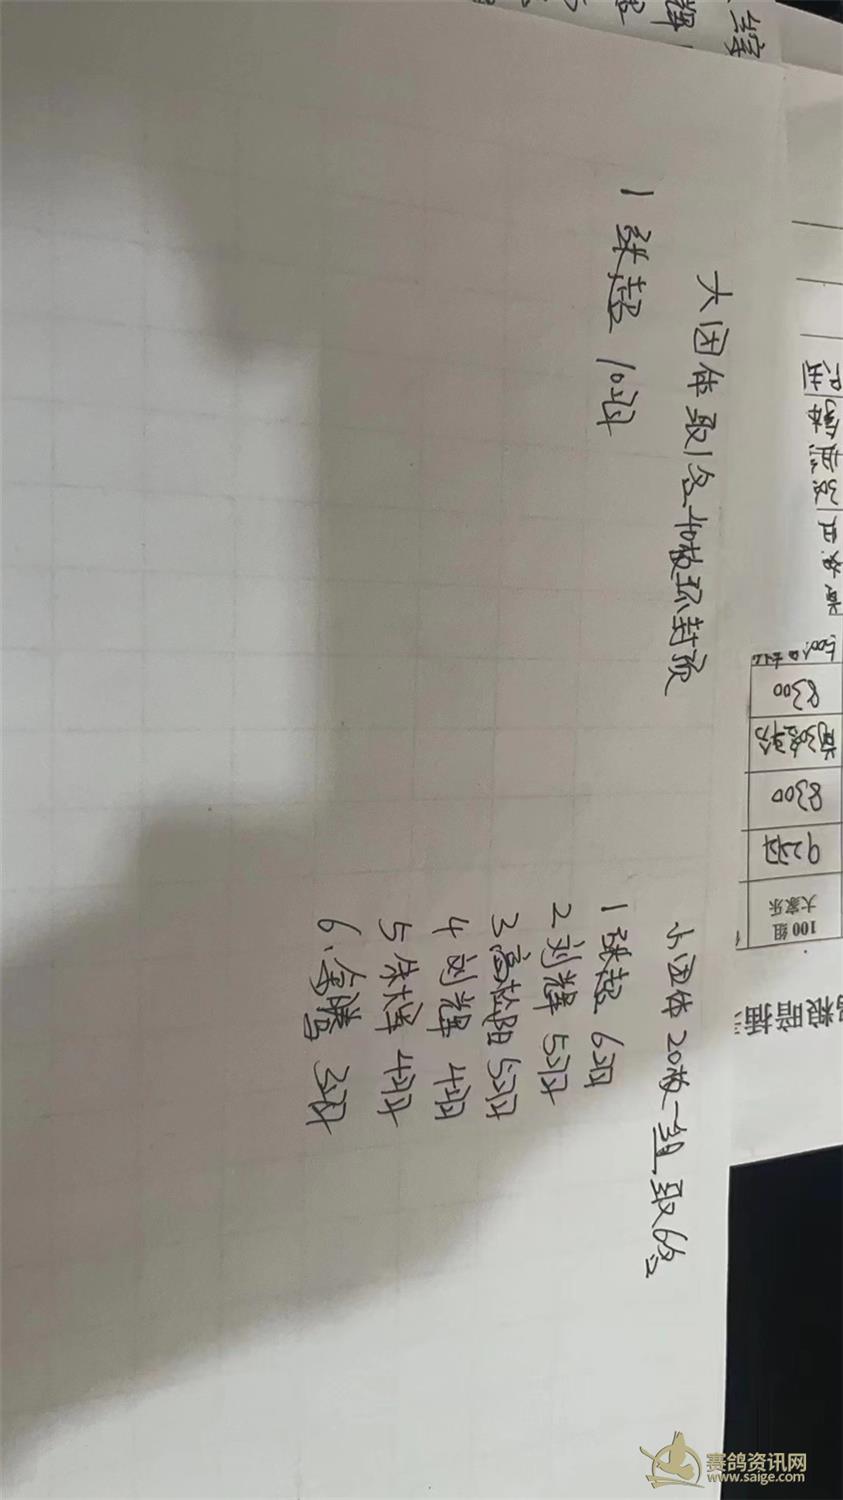 大团体取1名40枚环封顶
1 张超 10羽
小团体20枚一组取6名
1 张超 6羽
2 刘辉 5羽
3 高松阳 5羽
4 刘辉 4羽
5 朱大军 4羽
6、金腾 3羽
8300
8300
92羽
100组
大家乐
粮暗插
赛鸽资讯网
www.saige.com